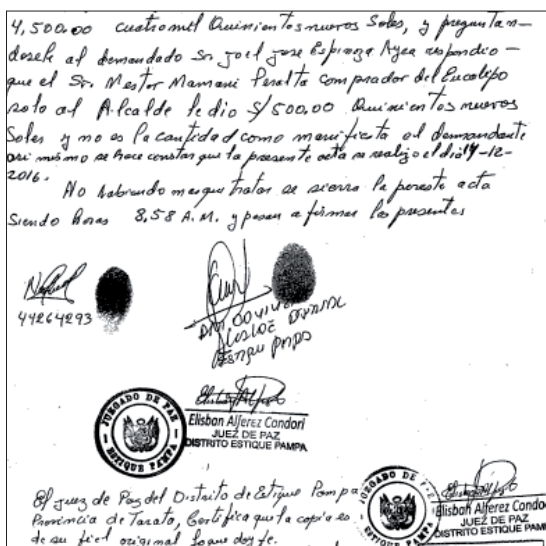 4,500.00 cuatromil Quinientos nuevos Soles, y preguntan-
dosele al demandado Sr. Joel Jose Espinoza Ayca respondio -
que el Sr. Nestor Mamani Peralta comprador del Eucalipo
solo al Alcalde le dio S/ 500.00 Quinientos nuevos
Soles y no es la cantidad como manifiesta el demandante
asi mismo se hace constar que la presente acta se realizo el dia 14-12-
2016.
No habiendo mas que tratar se sierra la pereste acta
Siendo horas 8,58 A.M. y pasan a firmar los presentes
44264293
JUZGADO DE PAZ
ESTIQUE PAMPA
Elisban Alferez Condori
JUEZ DE PAZ
DISTRITO ESTIQUE PAMPA
El juez de Paz del Distrito de Estique Pampa
Provincia de Tarata, Certifica que la copia es
de su fiel original lo que doy fe.
JUZGADO DE PAZ
ESTIQUE PAMPA
Elisban Alferez Condo
JUEZ DE PAZ
DISTRITO ESTIQUE PAM